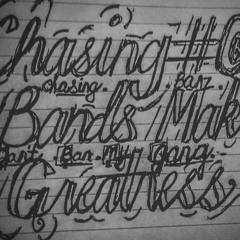 Chasing #
chasing. banz.
Bands Mak
Cant Ban My Gang.
Greatness